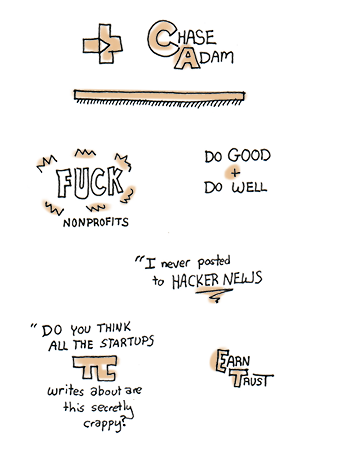 CHASE
ADAM
FUCK
NONPROFITS
DO GOOD
+
DO WELL
"I never posted
to HACKER NEWS
"DO YOU THINK
ALL THE STARTUPS
TC
writes about are
this secretly
crappy?
EARN
TRUST